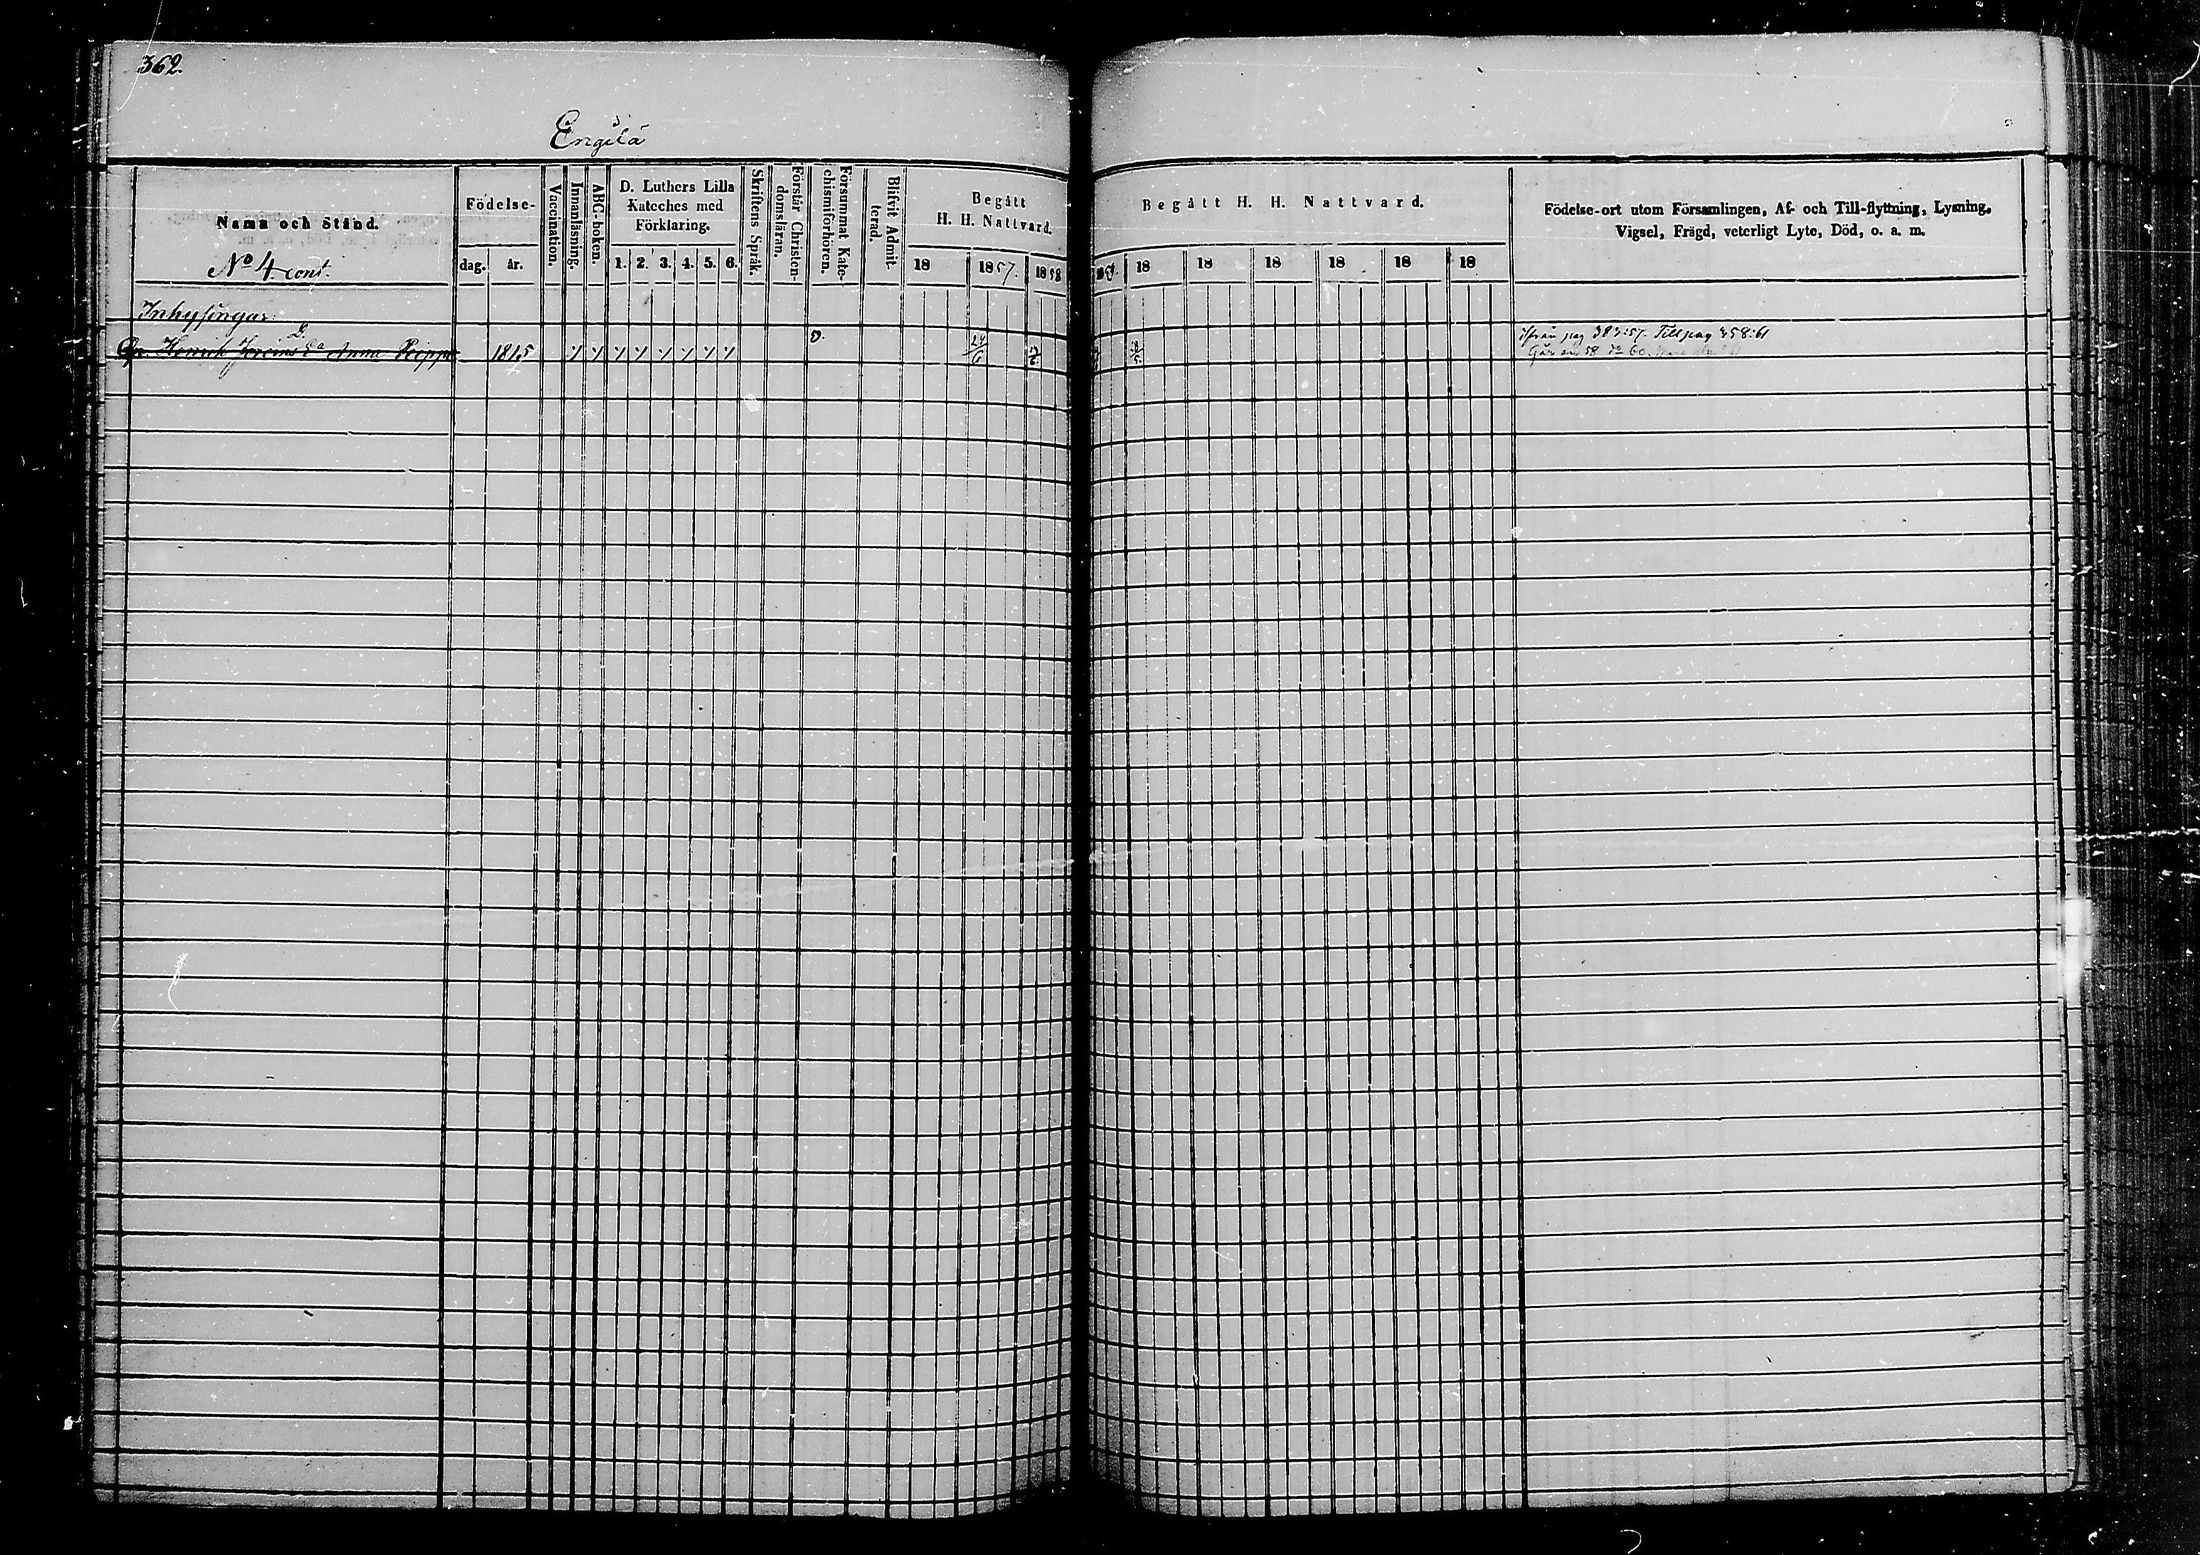 362.
Engilä
Namn och Stånd.
No 4 cont.
Födelse-
dag. år.
Vaccination.
Innanläsning.
ABC-boken.
D. Luthers Lilla
Kateches med
Förklaring.
1. 2. 3. 4. 5. 6.
Skriftens Språk.
Förstår Christen-
domsläran.
Försummat Kate-
chismiförhören.
Blifvit Admit-
terad.
Begått
H. H. Nattvard.
18 1857. 1858
Begått H. H. Nattvard.
18 18 18 18 18 18
Födelse-ort utom Församlingen, Af- och Till-flyttning, Lysning,
Vigsel, Frägd, veterligt Lyte, Död, o. a. m.
Inhysingar:
Henrik Anna 1815
Ifrån pag :57. Till pag 358:61